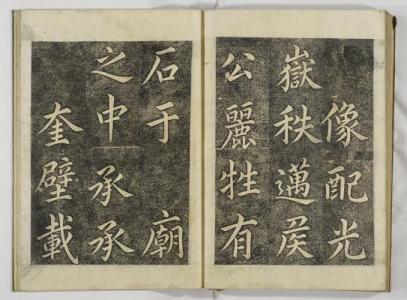 像配光
嶽秩邁矦
公麗牲有
石于廟
之中承承
奎壁載